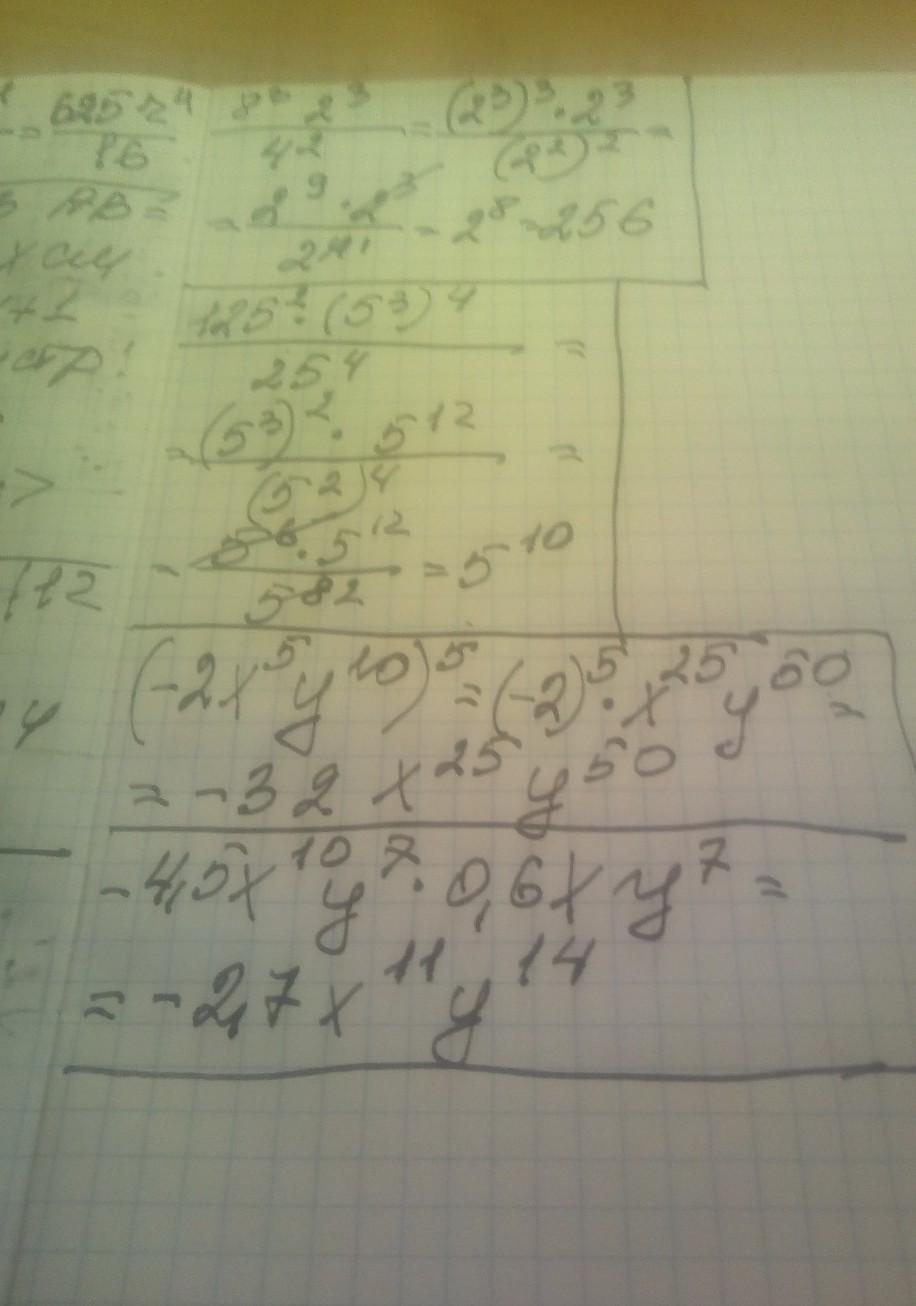 = 625 z⁴ / 86
AB =
x см
+1
>
112
y
8³ 2³ / 4² = (2³)³ · 2³ / (2²)² =
= 2⁹ · 2³ / 2⁴ ¹ = 2⁸ = 256
125² · (5³)⁴ / 25⁴ =
= (5³)² · 5¹² / (5²)⁴ =
= 5⁶ · 5¹² / 5⁸ ² = 5¹⁰
(-2x⁵y¹⁰)⁵ = (-2)⁵ · x²⁵ y⁵⁰ =
= -32 x²⁵ y⁵⁰
-4,5x¹⁰y⁷ · 0,6x y⁷ =
= -2,7 x¹¹ y¹⁴